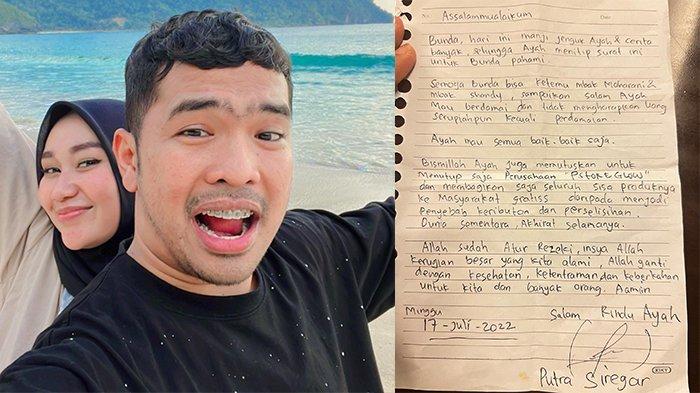 No.
Date
Assalammualaikum
Bunda, hari ini manji jenguk Ayah & cerita
banyak, sehingga Ayah menitip surat ini
untuk Bunda pahami.
Semoga Bunda bisa ketemu mbak Maharani &
mbak shandy, sampaikan salam Ayah
Mau berdamai dan tidak mengharapkan Uang
serupiahpun kecuali perdamaian.
Ayah mau semua baik-baik saja.
Bismillah Ayah juga memutuskan untuk
Menutup saja Perusahaan "PSTORE GLOW"
dan membagikan saja seluruh sisa produknya
ke Masyarakat gratiss daripada menjadi
Penyebab keributan dan perselisihan.
Dunia sementara, Akhirat selamanya.
Allah sudah Atur Rezeki, insya Allah
kerugian besar yang kita alami, Allah ganti
dengan kesehatan, ketentraman dan keberkahan
untuk kita dan banyak orang. Aamiin
Minggu
17-Juli-2022
Salam Rindu Ayah
Putra Siregar
KIKY